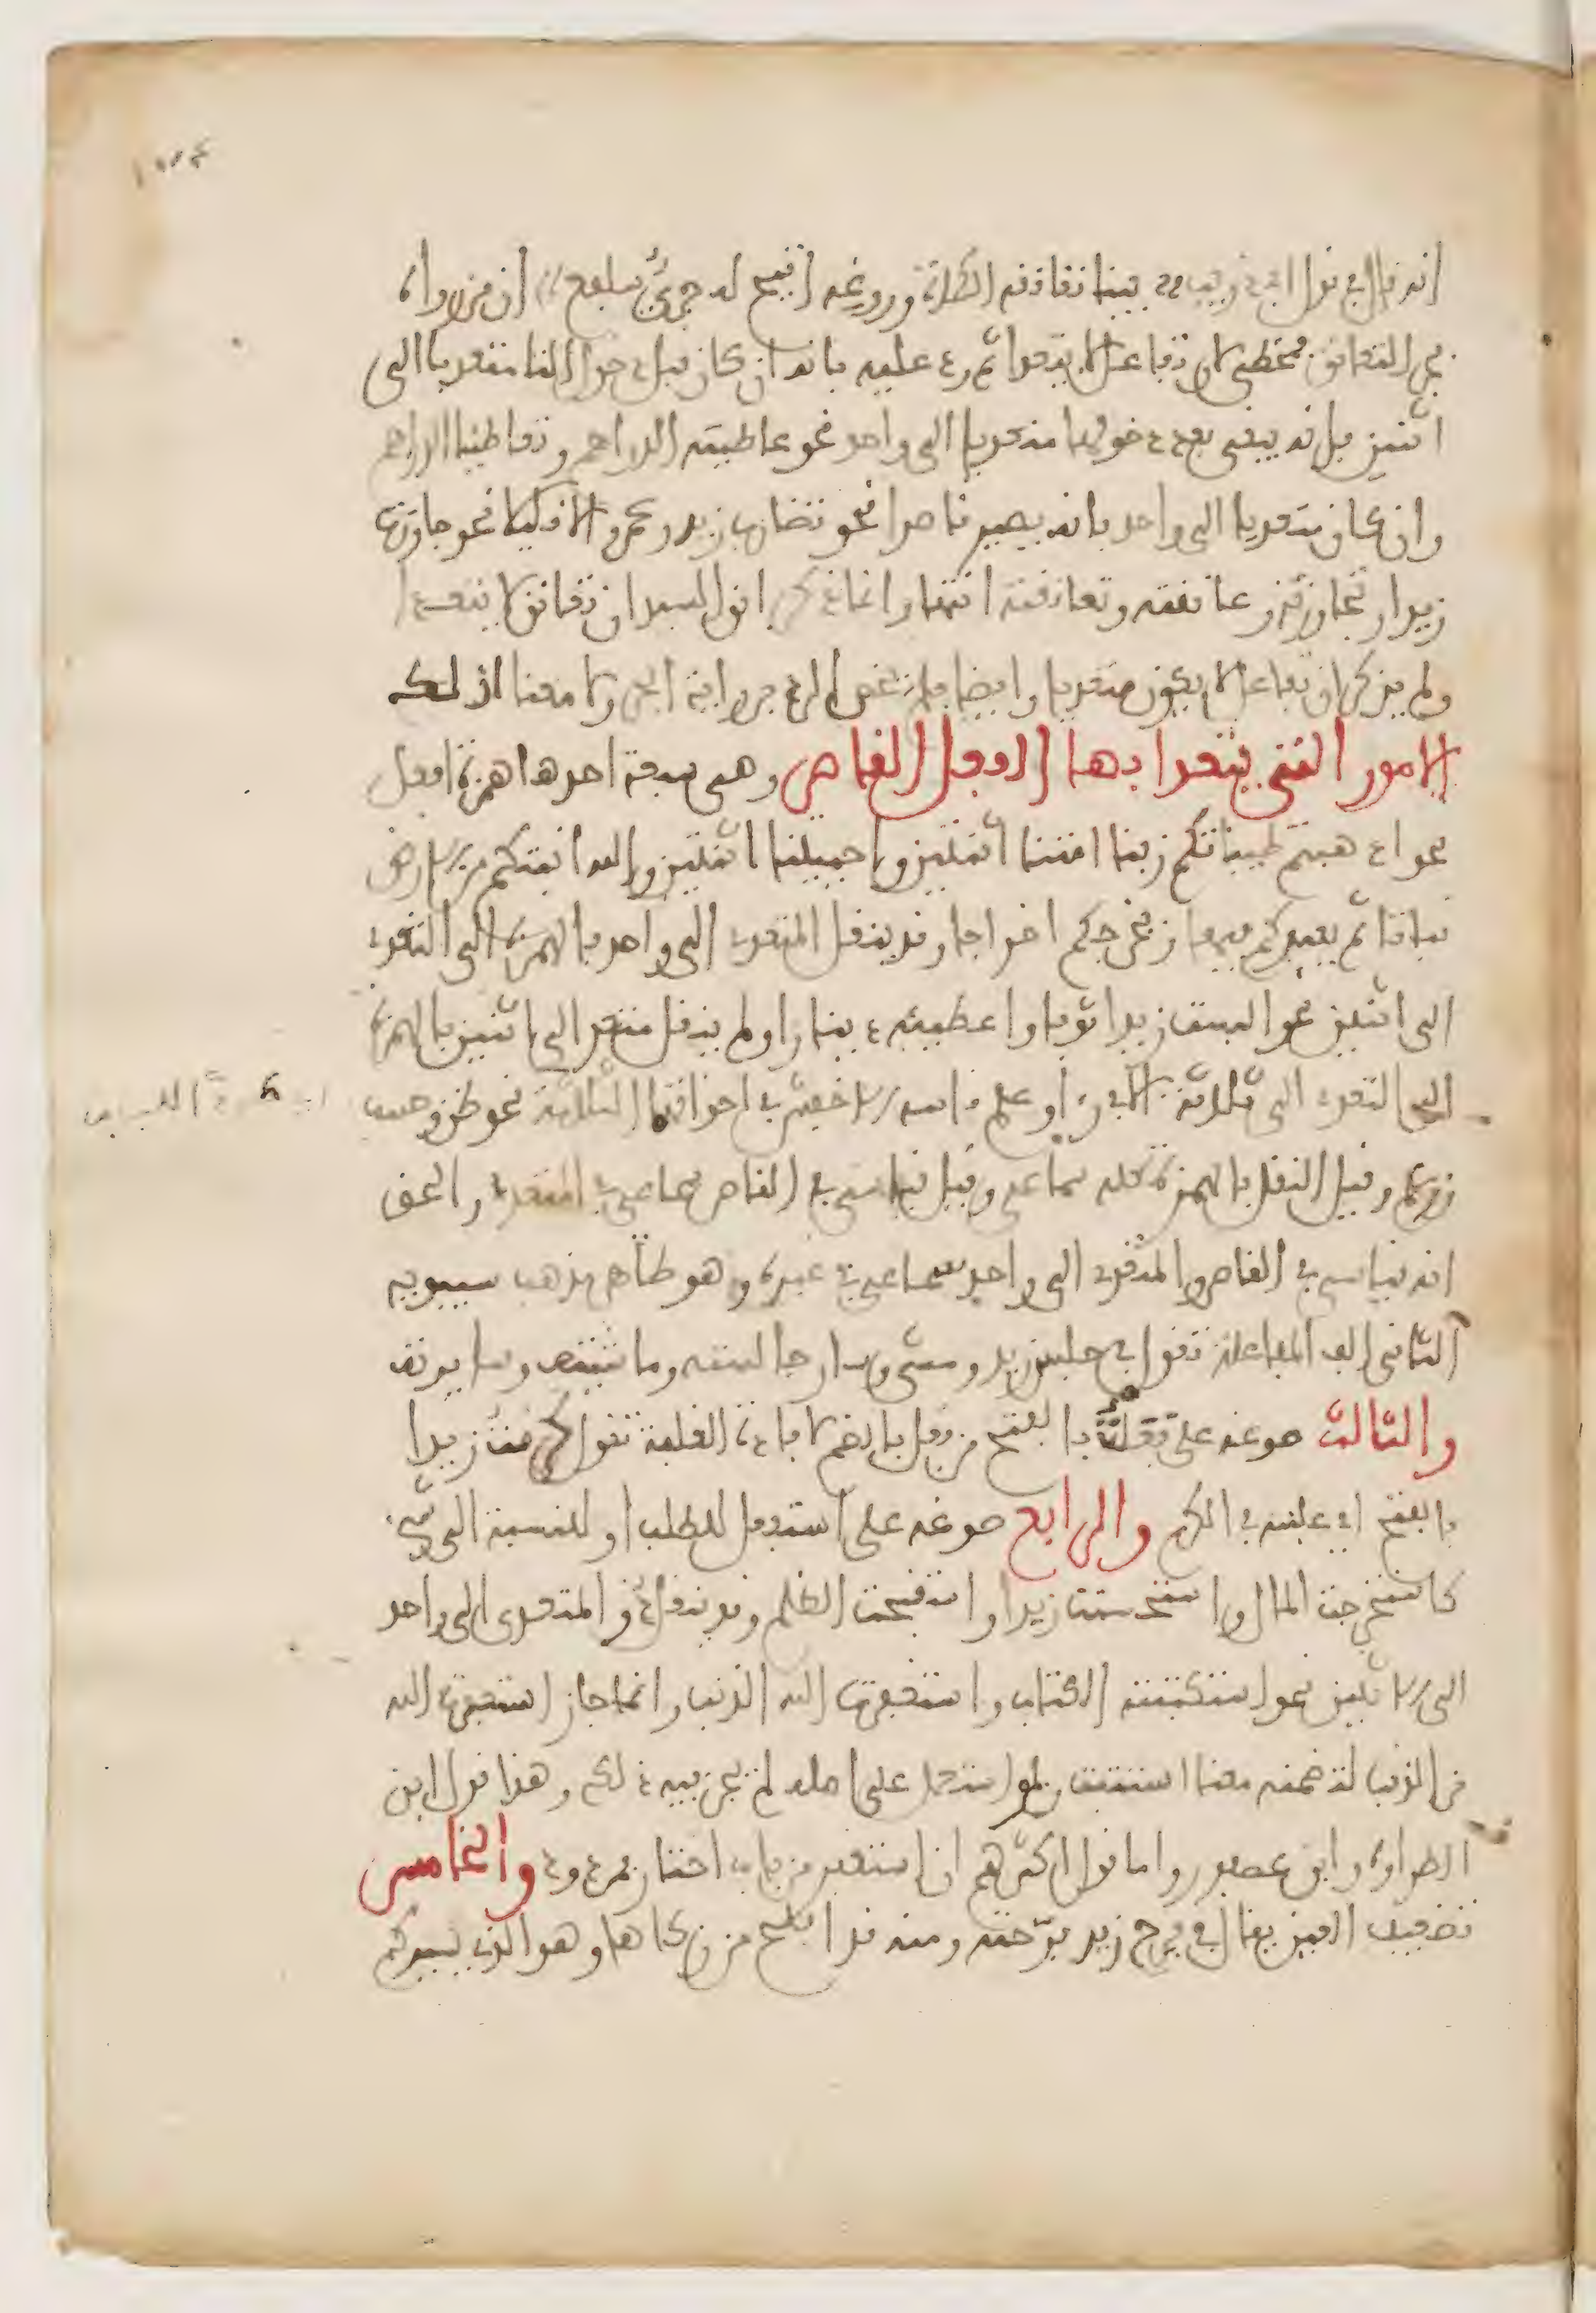 انه قال في قول ابي ذويب بينا تعانقه الكماة وروغه اتيح له جريء سلفع ان من رواه
بجر التعانق مخطئ لان تفاعل لا يتعدا ثم رد عليه بانه ان كان قبل دخول التا متعديا الى
اثنين فانه يبقى بعد دخولها متعديا الى واحد نحو عاطيته الدراهم وتعاطينا الدراهم
وان كان متعديا الى واحد فانه يصير قاصرا نحو تضارب زيد وعمرو الا قليلا نحو جاوزت
زيدا وتجاوزته وعانقته وتعانقته انتها وانما ذكر ابن السيد ان تعانق لا يتعدا
ولم يذكر ان تفاعل لا يكون متعديا وايضا فلم يخص الرد برواية الجر ولا معنا لذلك
الامور التي يتعدا بها الفعل القاصر وهي سبعة احدها همزة افعل
نحو اذهبتم طيباتكم ربنا امتنا اثنتين واحييتنا اثنتين والله انبتكم من الارض
نباتا ثم يعيدكم فيها ويخرجكم اخراجا وقد ينقل المتعدي الى واحد بالهمزة الى التعدي
الى اثنين نحو البست زيدا ثوبا واعطيته دينارا ولم ينقل متعد الى اثنين بالهمزة
الى التعدي الى ثلاثة الا في رءا وعلم وقاسه الاخفش في اخواتهما الثلاثة نحو ظن وحسب
وزعم وقيل النقل بالهمزة كله سماعي وقيل قياسي في القاصر سماعي في المتعدي والحق
انه قياسي في القاصر والمتعدي الى واحد سماعي في غيره وهو ظاهر مذهب سيبويه
الثاني الف المفاعلة تقول في جلس زيد ومشى وسار جالسته وماشيته وسايرته
والثالث صوغه على فعلت بالفتح من فعل بالضم لافادة الغلبة تقول كرمت زيدا
بالفتح اي غلبته في الكرم والرابع صوغه على استفعل للطلب او للنسبة الى الشيء
كاستخرجت المال واستحسنت زيدا واستقبحت الظلم وقد ينقل ذو المتعدى الى واحد
الى الاثنين نحو استكتبته الكتاب واستغفرت الله الذنب وانما جاز استغفرت الله
من الذنب لتضمنه معنا استتبت ولو استعمل على اصله لم يجز فيه ذلك وهذا قول ابن
الطراوة وابن عصفور واما قول اكثرهم ان استغفر من باب اختار فمردود والخامس
تضعيف العين يقال في فرح زيد فرّحته ومنه قد افلح من زكاها وهو الذي يسيركم